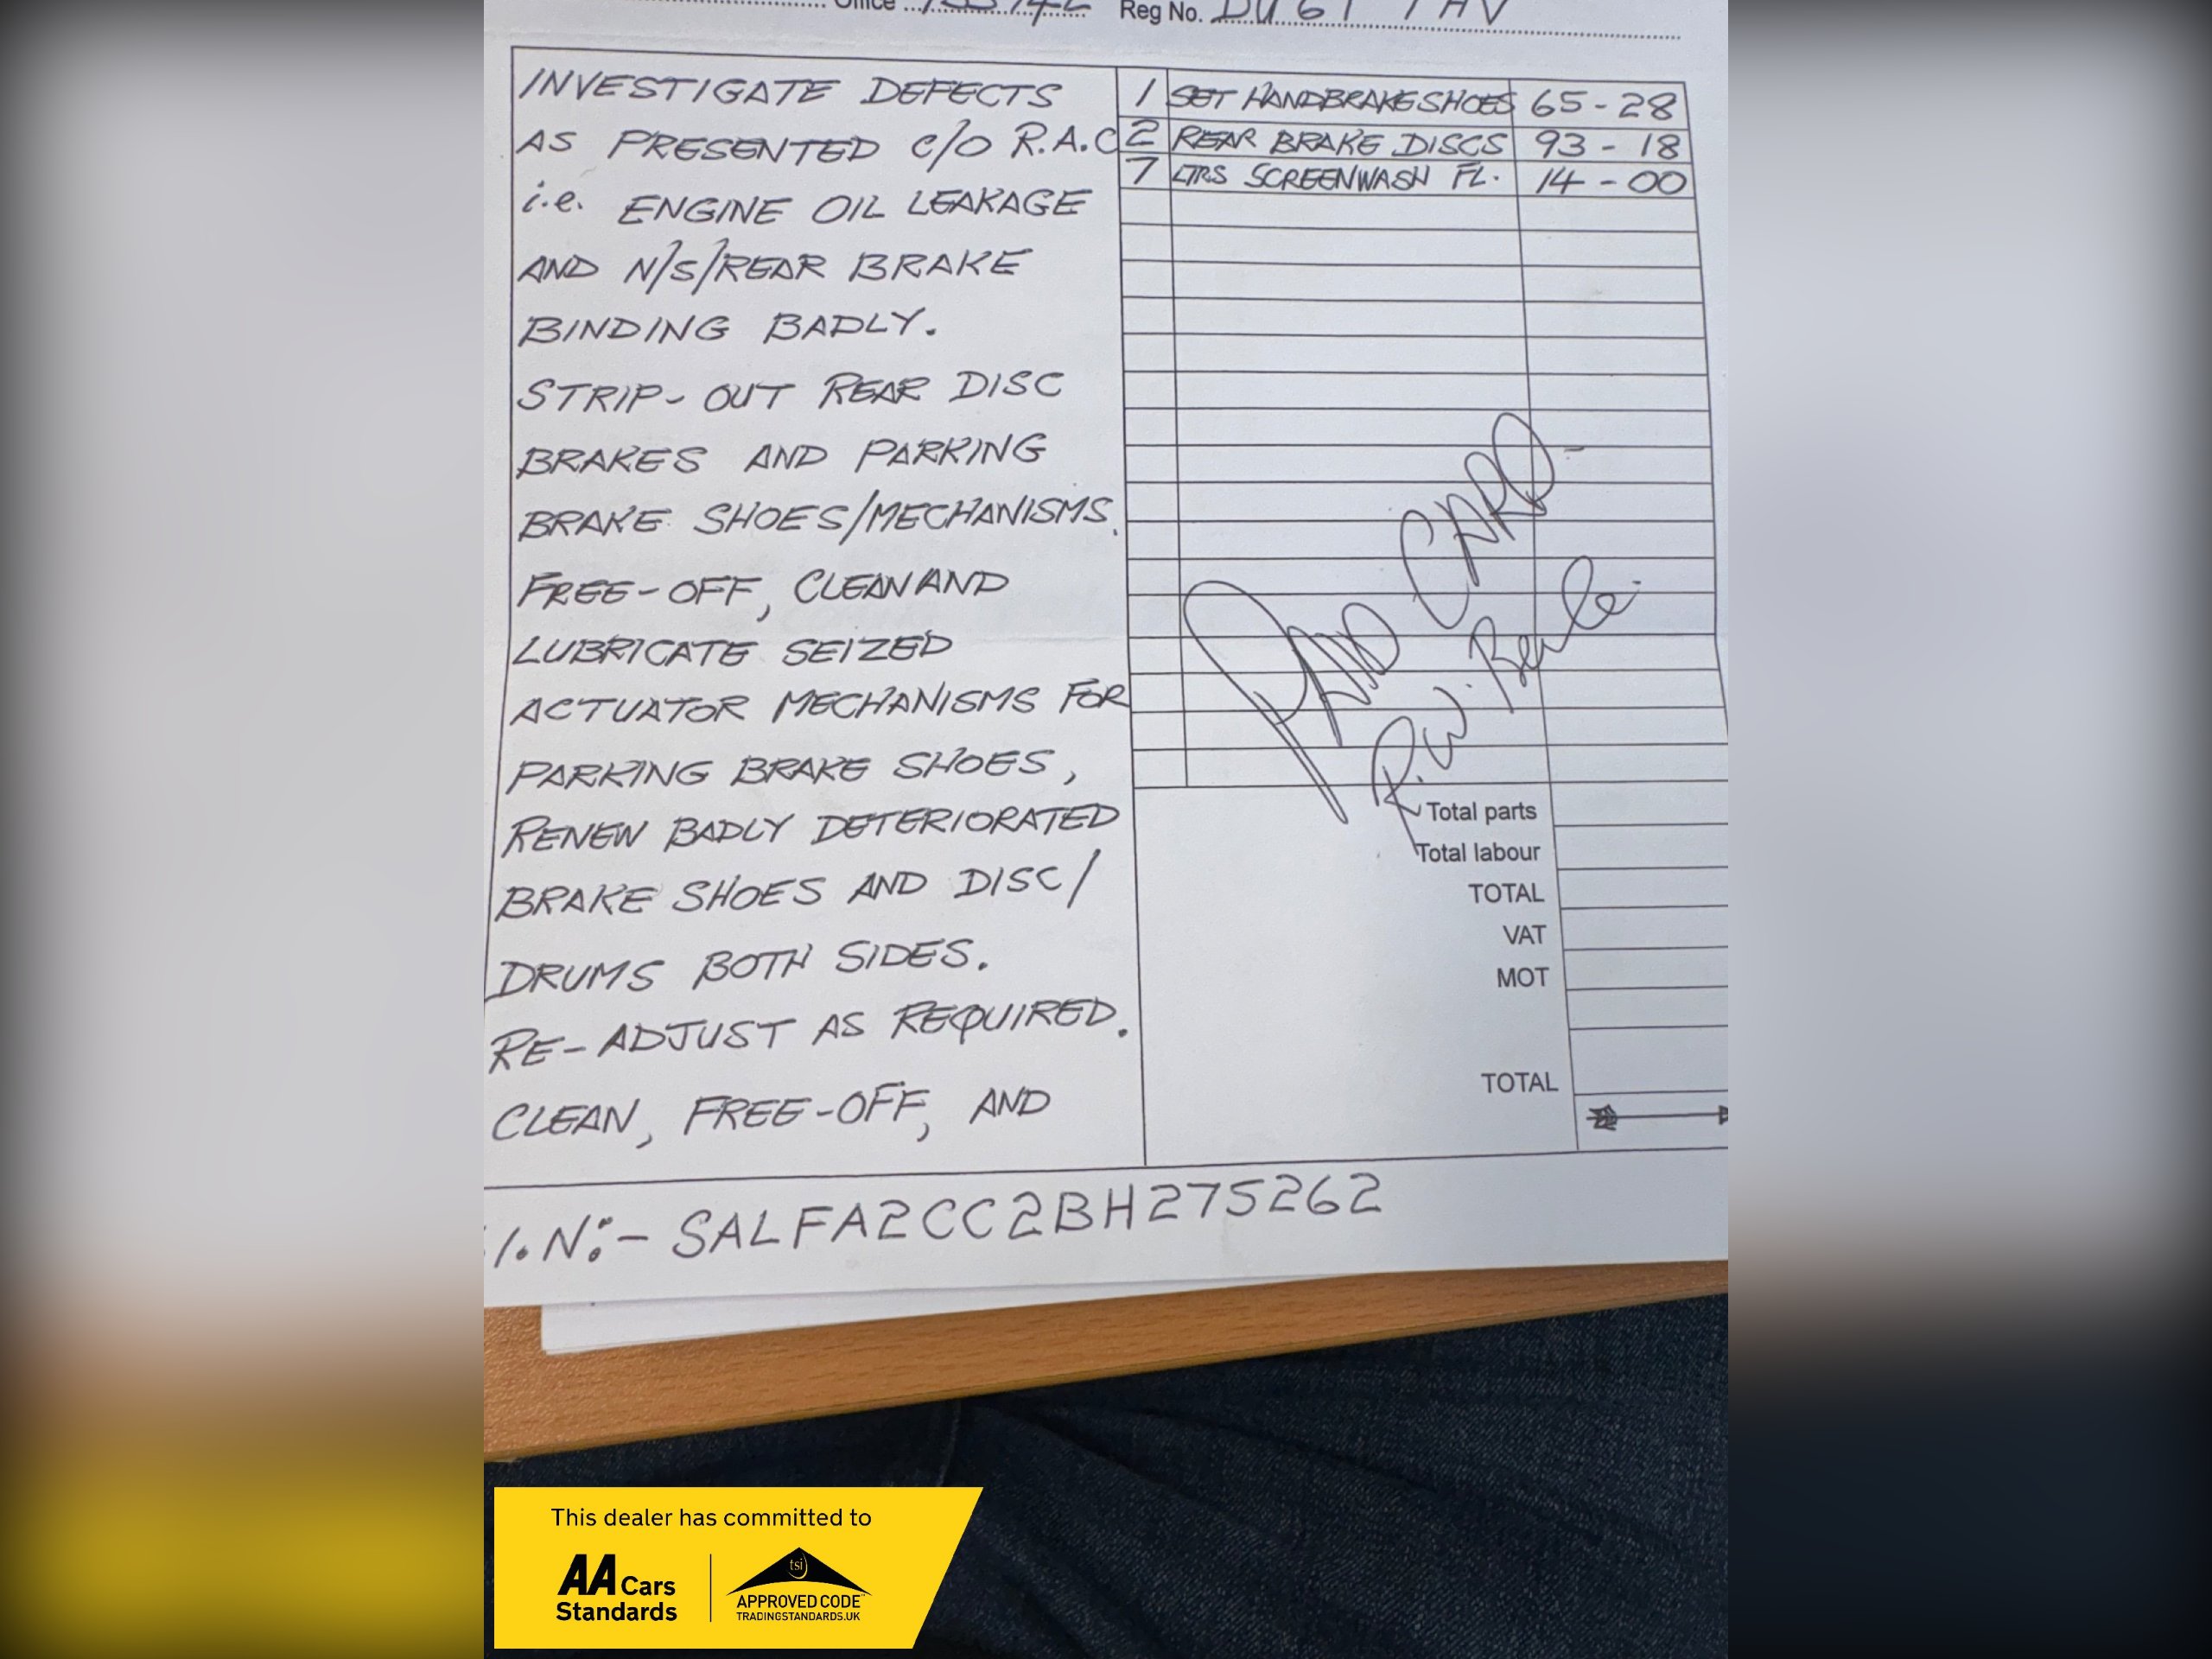 Office Reg No.
INVESTIGATE DEFECTS
AS PRESENTED C/O R.A.C
i.e. ENGINE OIL LEAKAGE
AND N/S/REAR BRAKE
BINDING BADLY.
STRIP-OUT REAR DISC
BRAKES AND PARKING
BRAKE SHOES/MECHANISMS.
FREE-OFF, CLEAN AND
LUBRICATE SEIZED
ACTUATOR MECHANISMS FOR
PARKING BRAKE SHOES,
RENEW BADLY DETERIORATED
BRAKE SHOES AND DISC/
DRUMS BOTH SIDES.
RE-ADJUST AS REQUIRED.
CLEAN, FREE-OFF, AND
1 SET HANDBRAKE SHOES 65-28
2 REAR BRAKE DISCS 93-18
7 LTRS SCREENWASH FL. 14-00
PAID CARD
R.W.
Total parts
Total labour
TOTAL
VAT
MOT
TOTAL
I.N:- SALFA2CC2BH275262
This dealer has committed to
AA Cars
Standards
tsi
APPROVED CODE
TRADINGSTANDARDS.UK